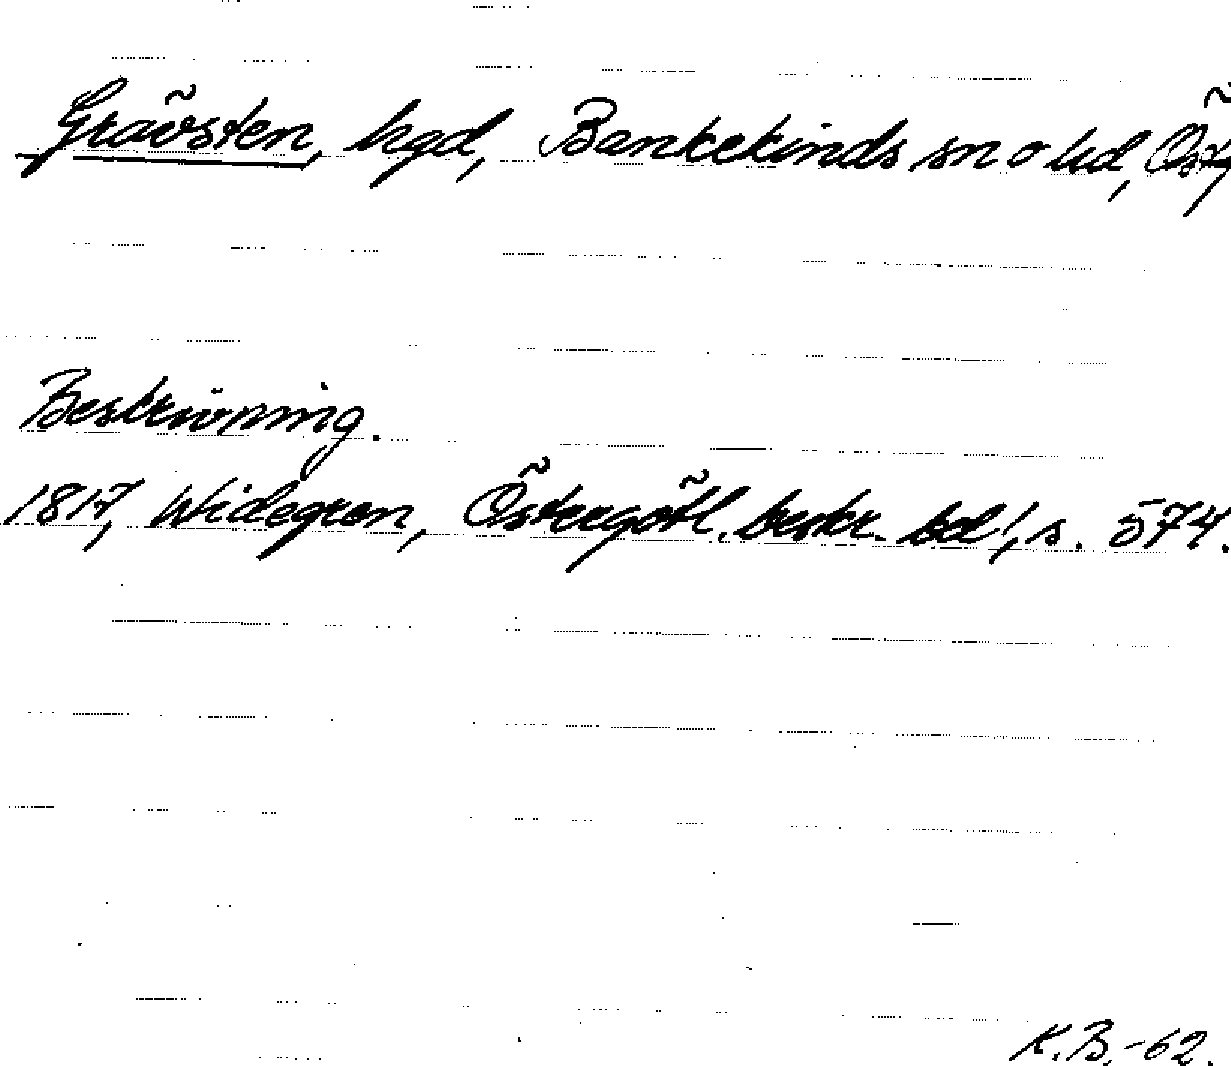 Gravsten, hgd, Bankekinds sn o hd, Östg
Beskrivning.
1817, Widegren, Östergötl. beskr. bd 1, s. 574.
K.B.-62.